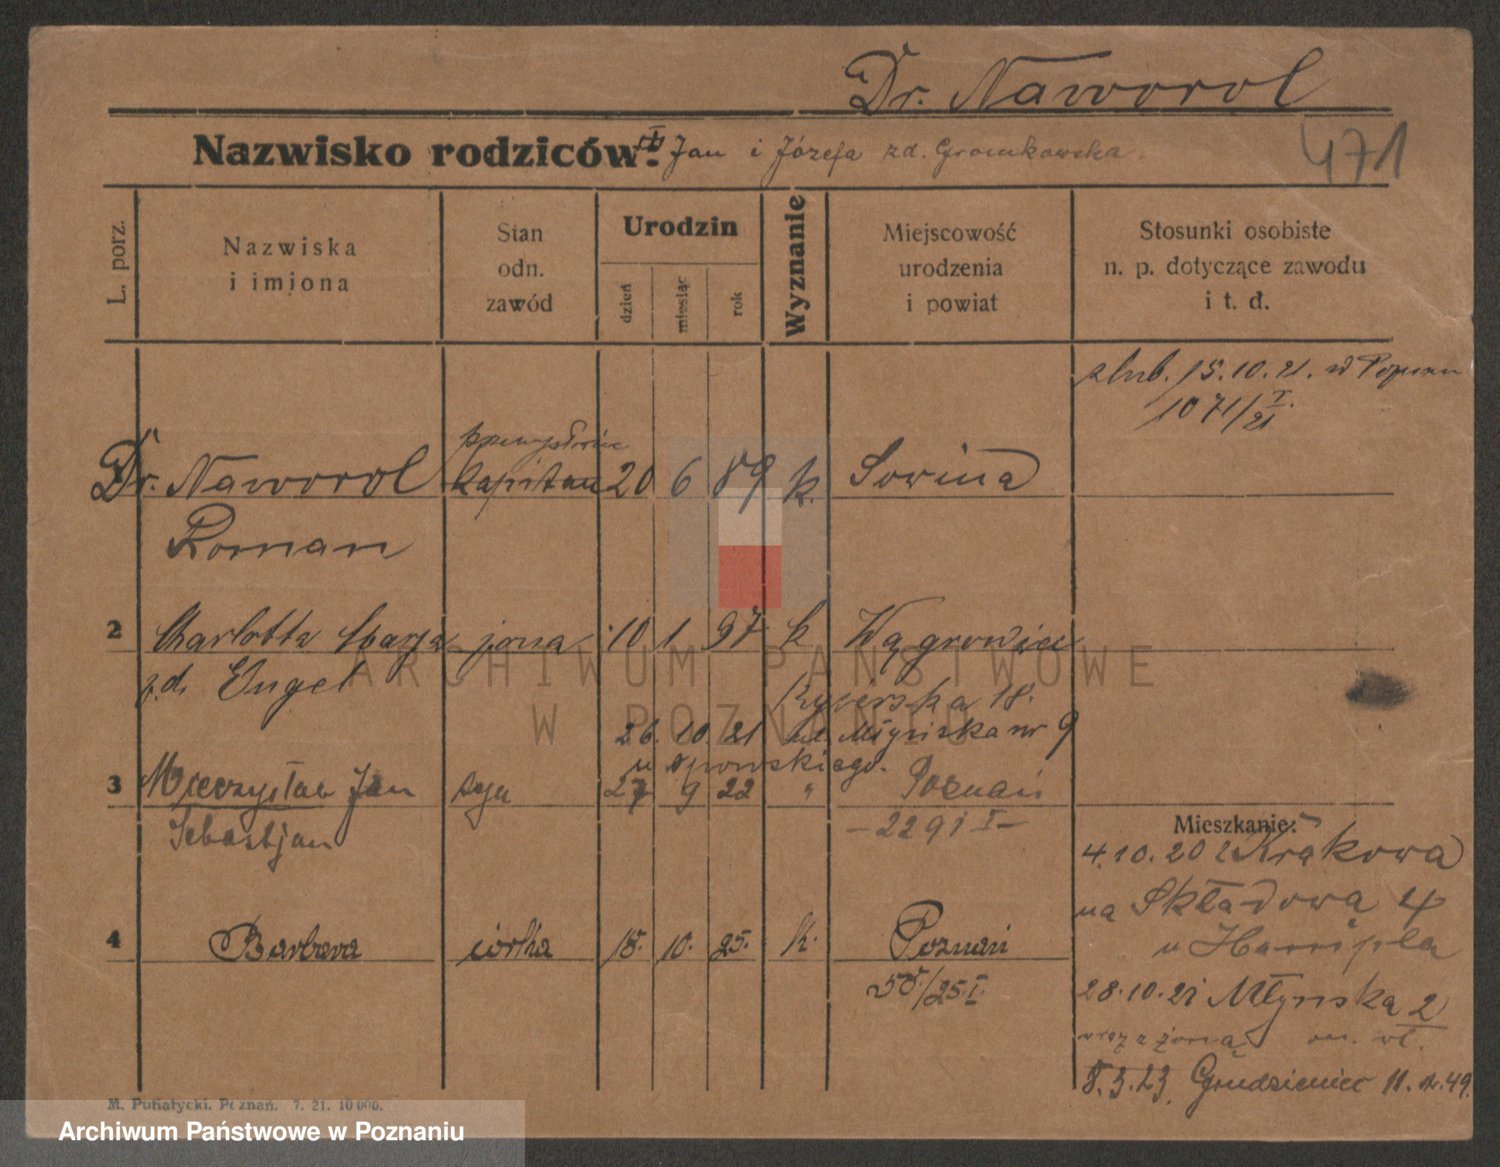 Dr. Naworol
471
Nazwisko rodziców: Jan i Józefa zd. Gromkowska.
L. porz.
Nazwiska
i imiona
Stan
odn.
zawód
Urodzin
dzień
miesiąc
rok
Wyznanie
Miejscowość
urodzenia
i powiat
Stosunki osobiste
n. p. dotyczące zawodu
i t. d.
15.10.21. w
1071/I.21
Dr. Naworol kapitan 20 6 89 k. Sowina
Roman
2 Charlotta Marja żona 10 1 97 k Wągrowiec
zd. Engel
18.
26. 10. 21 Młyńska nr 9
3 Mieczysław Jan syn 27 9 22 " Poznań
Sebastjan
- 2291 I -
Mieszkanie:
4.10.20 z Krakowa
na Składową 4
u
4 Barbara córka 15. 10. 25. k. Poznań
28.10.21 Młyńska 2
z żoną
8.3.23. Grudzieniec 11. 49.
M. Putiatycki, Poznań. 7. 21. 10 000.
ARCHIWUM PAŃSTWOWE
W POZNANIU
Archiwum Państwowe w Poznaniu